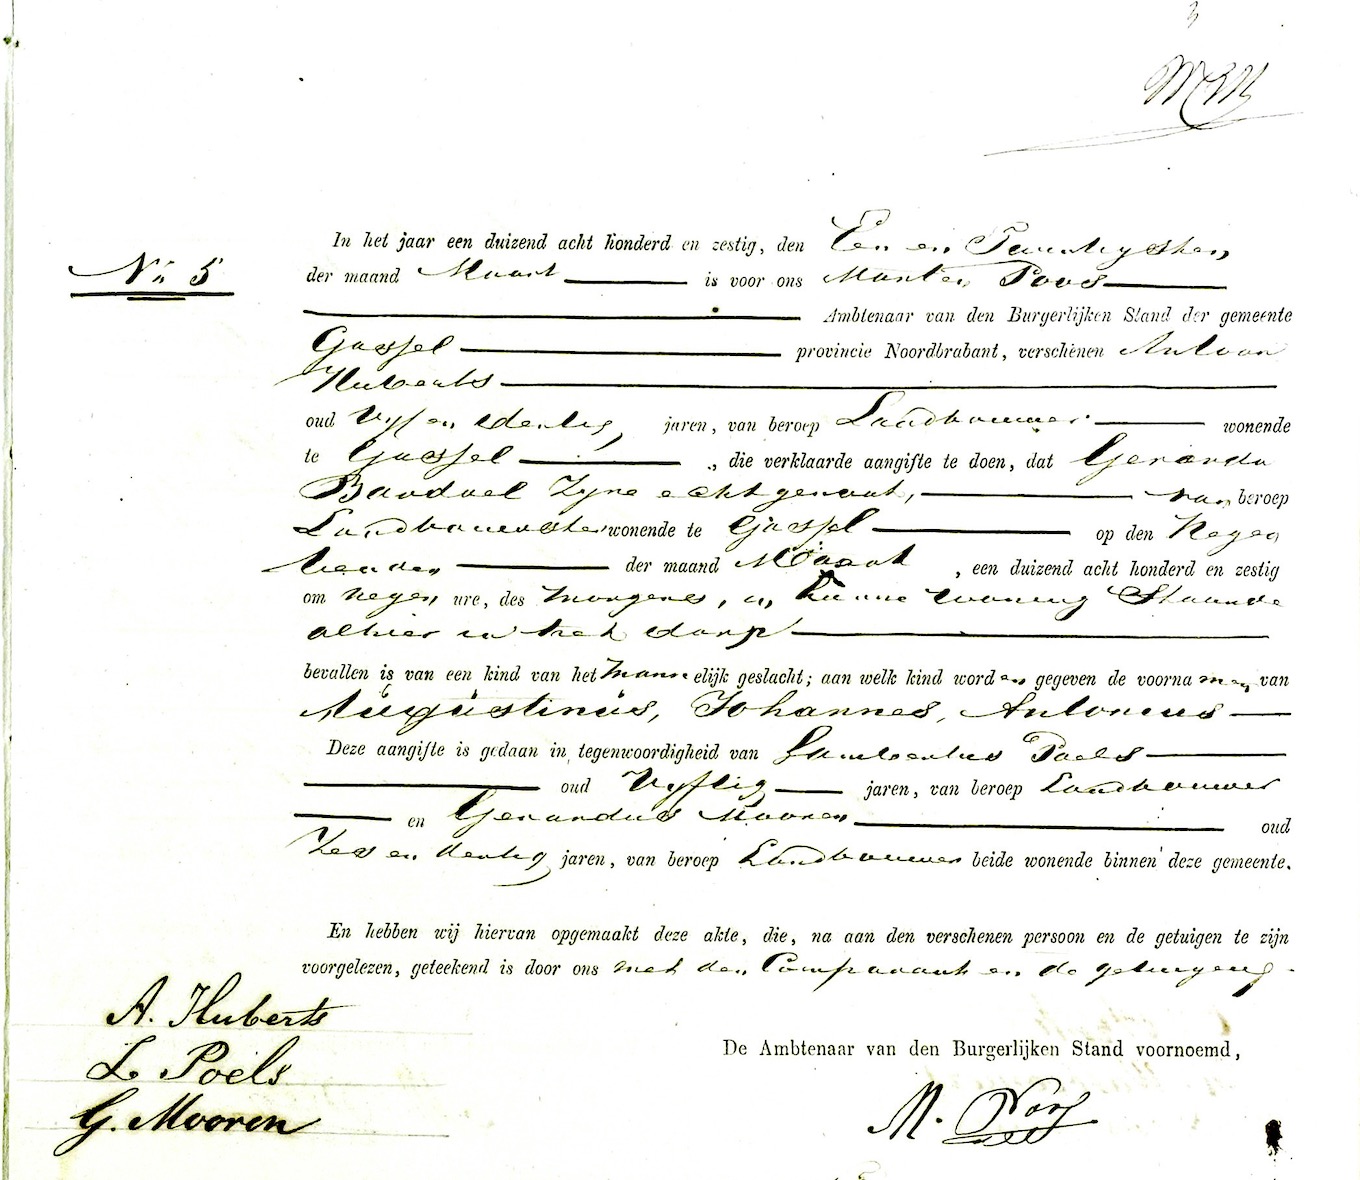 3
No 5
In het jaar een duizend acht honderd en zestig, den Een en Twintigsten
der maand Maart is voor ons Marten Poos
Ambtenaar van den Burgerlijken Stand der gemeente
Gassel provincie Noordbrabant, verschenen Antoon
Huberts
oud Vyf en dertig, jaren, van beroep Landbouwer wonende
te Gassel , die verklaarde aangifte te doen, dat Gerarda
Zyne echtgenoot, van beroep
Landbouwster wonende te Gassel op den Negen
tienden der maand Maart , een duizend acht honderd en zestig
om negen ure, des morgens, in hunne woning Staande
alhier in het dorp
bevallen is van een kind van het mannelijk geslacht; aan welk kind worden gegeven de voornamen van
Augustinus, Johannes, Antonius
Deze aangifte is gedaan in tegenwoordigheid van Lambertus Poels
oud Vyftig jaren, van beroep Landbouwer
en Gerardus Mooren oud
Zes en dertig jaren, van beroep Landbouwer beide wonende binnen deze gemeente.
En hebben wij hiervan opgemaakt deze akte, die, na aan den verschenen persoon en de getuigen te zijn
voorgelezen, geteekend is door ons met den Comparant en de getuigen.
A. Huberts
L Poels
G. Mooren
De Ambtenaar van den Burgerlijken Stand voornoemd,
M. Poos